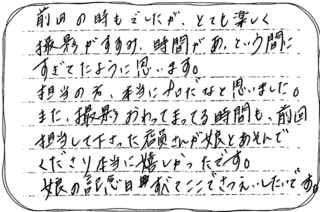 前回の時もでしたが、とても楽しく
撮影がすすみ、時間があっという間に
すぎてたように思います。
担当の方、本当にプロだなと思いました。
また、撮影おわってまってる時間も、前回
担当して下さった店員さんが娘とあそんで
くださり本当に嬉しかったです。
娘の記念日 すべてここでさつえいしたいです。